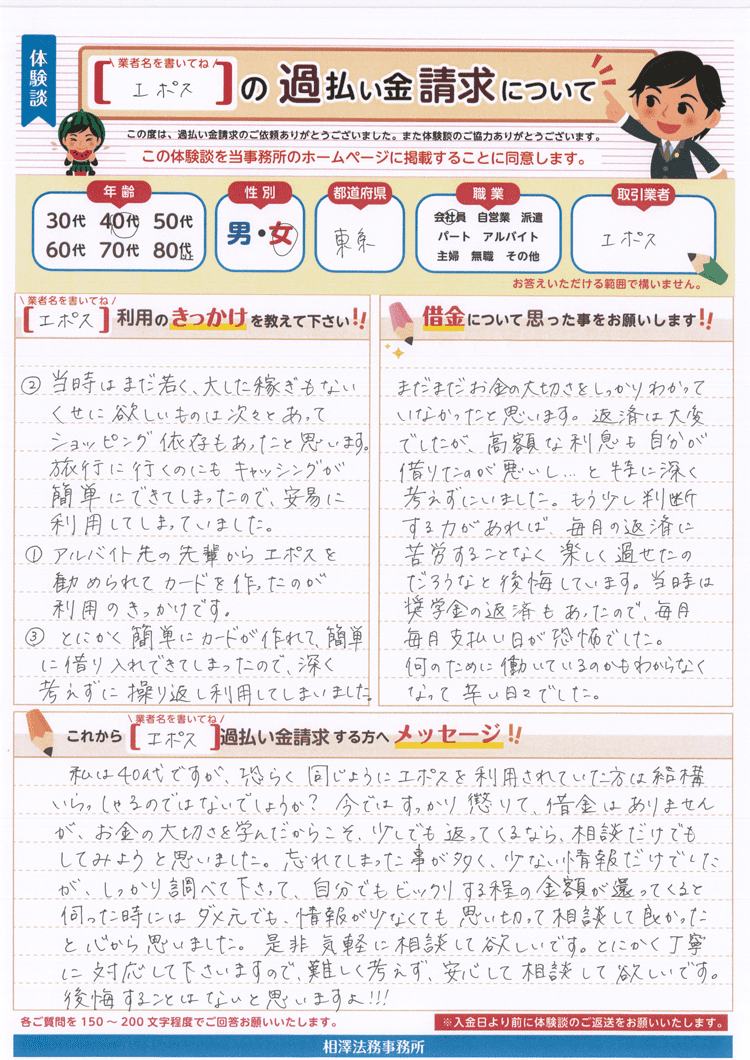 体験談
\ 業者名を書いてね /
[エポス]の過払い金請求について
この度は、過払い金請求のご依頼ありがとうございました。また体験談のご協力ありがとうございます。
この体験談を当事務所のホームページに掲載することに同意します。
年齢
30代 40代 50代
60代 70代 80代以上
性別
男・女
都道府県
東京
職業
会社員 自営業 派遣
パート アルバイト
主婦 無職 その他
取引業者
エポス
お答えいただける範囲で構いません。
\ 業者名を書いてね /
[エポス]利用のきっかけを教えて下さい!!
② 当時はまだ若く、大した稼ぎもない
くせに欲しいものは次々とあって
ショッピング依存もあったと思います。
旅行に行くのにもキャッシングが
簡単にできてしまったので、安易に
利用してしまっていました。
① アルバイト先の先輩からエポスを
勧められてカードを作ったのが
利用のきっかけです。
③ とにかく簡単にカードが作れて、簡単
に借り入れできてしまったので、深く
考えずに操り返し利用してしまいました。
借金について思った事をお願いします!!
まだまだお金の大切さをしっかりわかって
いなかったと思います。返済は大変
でしたが、高額な利息も自分が
借りたのが悪いし…と特に深く
考えずにいました。もう少し判断
する力があれば、毎月の返済に
苦労することなく楽しく過せたの
だろうなと後悔しています。当時は
奨学金の返済もあったので、毎月
毎月支払い日が恐怖でした。
何のために働いているのかもわからなく
なって辛い日々でした。
これから
\ 業者名を書いてね /
[エポス]過払い金請求する方へメッセージ!!
私は40代ですが、恐らく同じようにエポスを利用されていた方は結構
いらっしゃるのではないでしょうか?今ではすっかり懲りて、借金はありません
が、お金の大切さを学んだからこそ、少しでも返ってくるなら、相談だけでも
してみようと思いました。忘れてしまった事が多く、少ない情報だけでした
が、しっかり調べて下さって、自分でもビックリする程の金額が還ってくると
伺った時にはダメ元でも、情報が少なくても思い切って相談して良かった
と心から思いました。是非気軽に相談して欲しいです。とにかく丁寧
に対応して下さいますので、難しく考えず、安心して相談して欲しいです。
後悔することはないと思いますよ!!!
各ご質問を150～200文字程度でご回答お願いいたします。
※入金日より前に体験談のご返送をお願いいたします。
相澤法務事務所